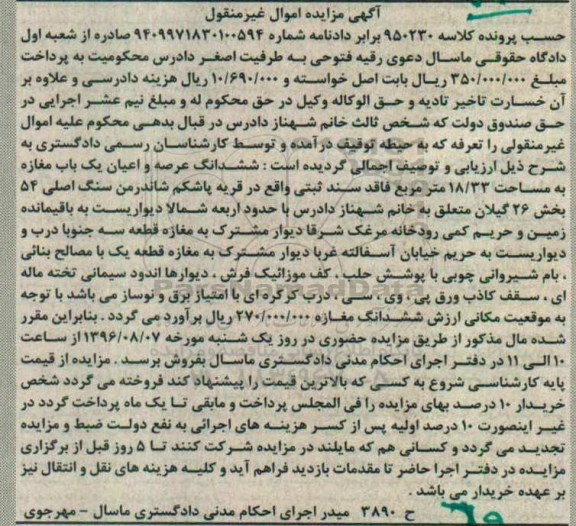 آگهی مزایده اموال غیرمنقول
حسب پرونده کلاسه ۹۵۰۲۳۰ برابر دادنامه شماره ۹۴۰۹۹۷۱۸۳۰۱۰۰۵۹۴ صادره از شعبه اول
دادگاه حقوقی ماسال دعوی رقیه فتوحی به طرفیت اصغر دادرس محکومیت به پرداخت
مبلغ ۳۵۰/۰۰۰/۰۰۰ ریال بابت اصل خواسته و ۱۰/۶۹۰/۰۰۰ ریال هزینه دادرسی و علاوه بر
آن خسارت تاخیر تادیه و حق الوکاله وکیل در حق محکوم له و مبلغ نیم عشر اجرایی در
حق صندوق دولت که شخص ثالث خانم شهناز دادرس در قبال بدهی محکوم علیه اموال
غیرمنقولی را تعرفه که به حیطه توقیف درآمده و توسط کارشناسان رسمی دادگستری به
شرح ذیل ارزیابی و توصیف اجمالی گردیده است : ششدانگ عرصه و اعیان یک باب مغازه
به مساحت ۱۸/۳۳ متر مربع فاقد سند ثبتی واقع در قریه پاشکم شاندرمن سنگ اصلی ۵۴
بخش ۲۶ گیلان متعلق به خانم شهناز دادرس با حدود اربعه شمالا دیواریست به باقیمانده
زمین و حریم کمی رودخانه مرغک شرقا دیوار مشترک به مغازه قطعه سه جنوبا درب و
دیواریست به حریم خیابان آسفالته غربا دیوار مشترک به مغازه قطعه یک با مصالح بنائی
، بام شیروانی چوبی با پوشش حلب ، کف موزائیک فرش ، دیوارها اندود سیمانی تخته ماله
ای ، سقف کاذب ورق پی ، وی ، سی ، درب کرکره ای با امتیاز برق و نوساز می باشد با توجه
به موقعیت مکانی ارزش ششدانگ مغازه ۲۷۰/۰۰۰/۰۰۰ ریال برآورد می گردد . بنابراین مقرر
شده مال مذکور از طریق مزایده حضوری در روز یک شنبه مورخه ۱۳۹۶/۰۸/۰۷ از ساعت
۱۰ الی ۱۱ در دفتر اجرای احکام مدنی دادگستری ماسال بفروش برسد . مزایده از قیمت
پایه کارشناسی شروع به کسی که بالاترین قیمت را پیشنهاد کند فروخته می گردد شخص
خریدار ۱۰ درصد بهای مزایده را فی المجلس پرداخت و مابقی تا یک ماه پرداخت گردد در
غیر اینصورت ۱۰ درصد اولیه پس از کسر هزینه های اجرائی به نفع دولت ضبط و مزایده
تجدید می گردد و کسانی هم که مایلند در مزایده شرکت کنند تا ۵ روز قبل از برگزاری
مزایده در دفتر اجرا حاضر تا مقدمات بازدید فراهم آید و کلیه هزینه های نقل و انتقال نیز
بر عهده خریدار می باشد .
ح ۳۸۹۰ میدر اجرای احکام مدنی دادگستری ماسال - مهرجوی
ParsNamadData